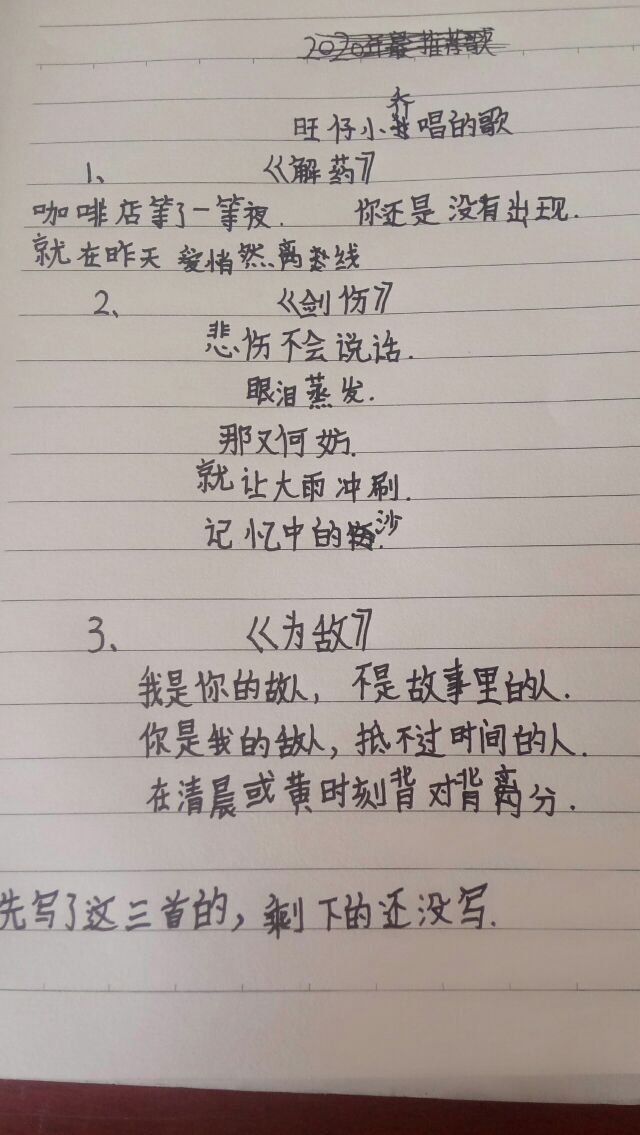 2020年最推荐歌
旺仔小乔唱的歌
1、《解药》
咖啡店等了一等夜. 你还是没有出现.
就在昨天 爱悄然离热线
2、《剑伤》
悲伤不会说话.
眼泪蒸发.
那又何妨.
就让大雨冲刷.
记忆中的沙.
3、《为敌》
我是你的故人，不是故事里的人.
你是我的敌人，抵不过时间的人.
在清晨或黄时刻背对背离分.
先写了这三首的，剩下的还没写.